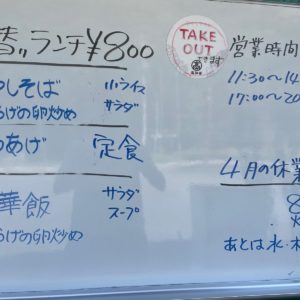 香〃ランチ¥800
やしそば 小ライス
らげの卵炒め サラダ
あげ 定食
華飯 サラダ
スープ
らげの卵炒め
TAKE
OUT
できます
営業時間
11:30〜14
17:00〜20
4月の休業
8
あとは水・木